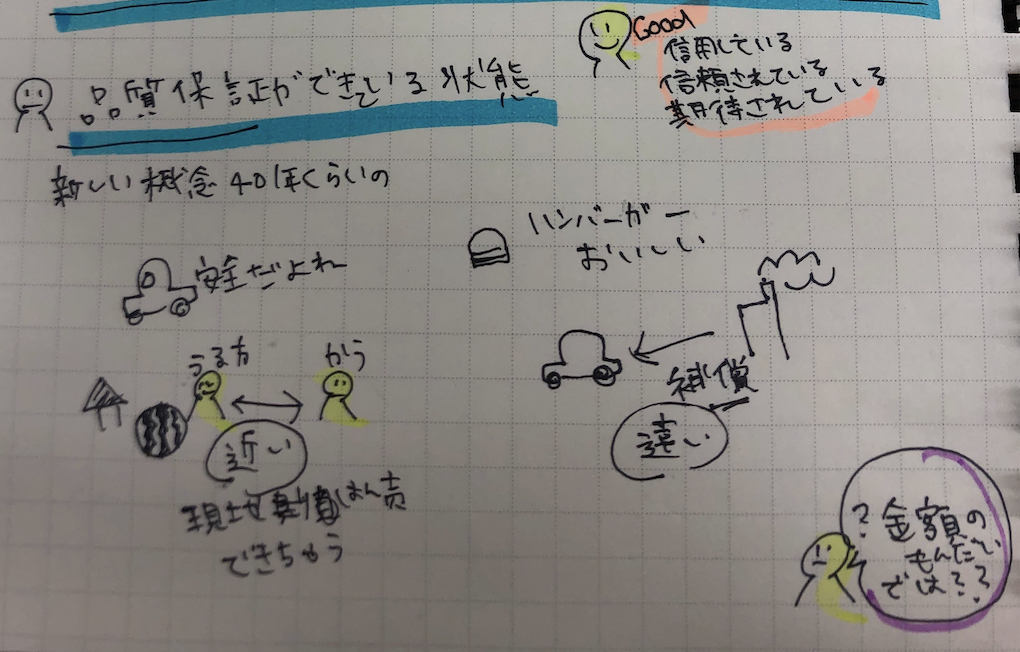 Good
信用している
信頼されている
期待されている
品質保証ができている状態
新しい概念 40年くらいの
ハンバーガー
おいしい
安全だよね
うる方
かう
補償
近い
遠い
現地 はん売
できちゃう
? 金額の
もんだい
では??